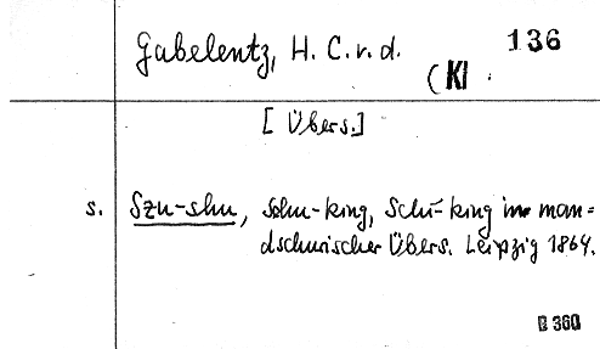 Gabelentz, H. C. v. d. 136
(KI
[Übers.]
s. Szu-shu, Schu-king, Schi-king in man=
dschurischer Übers. Leipzig 1864.
B 360